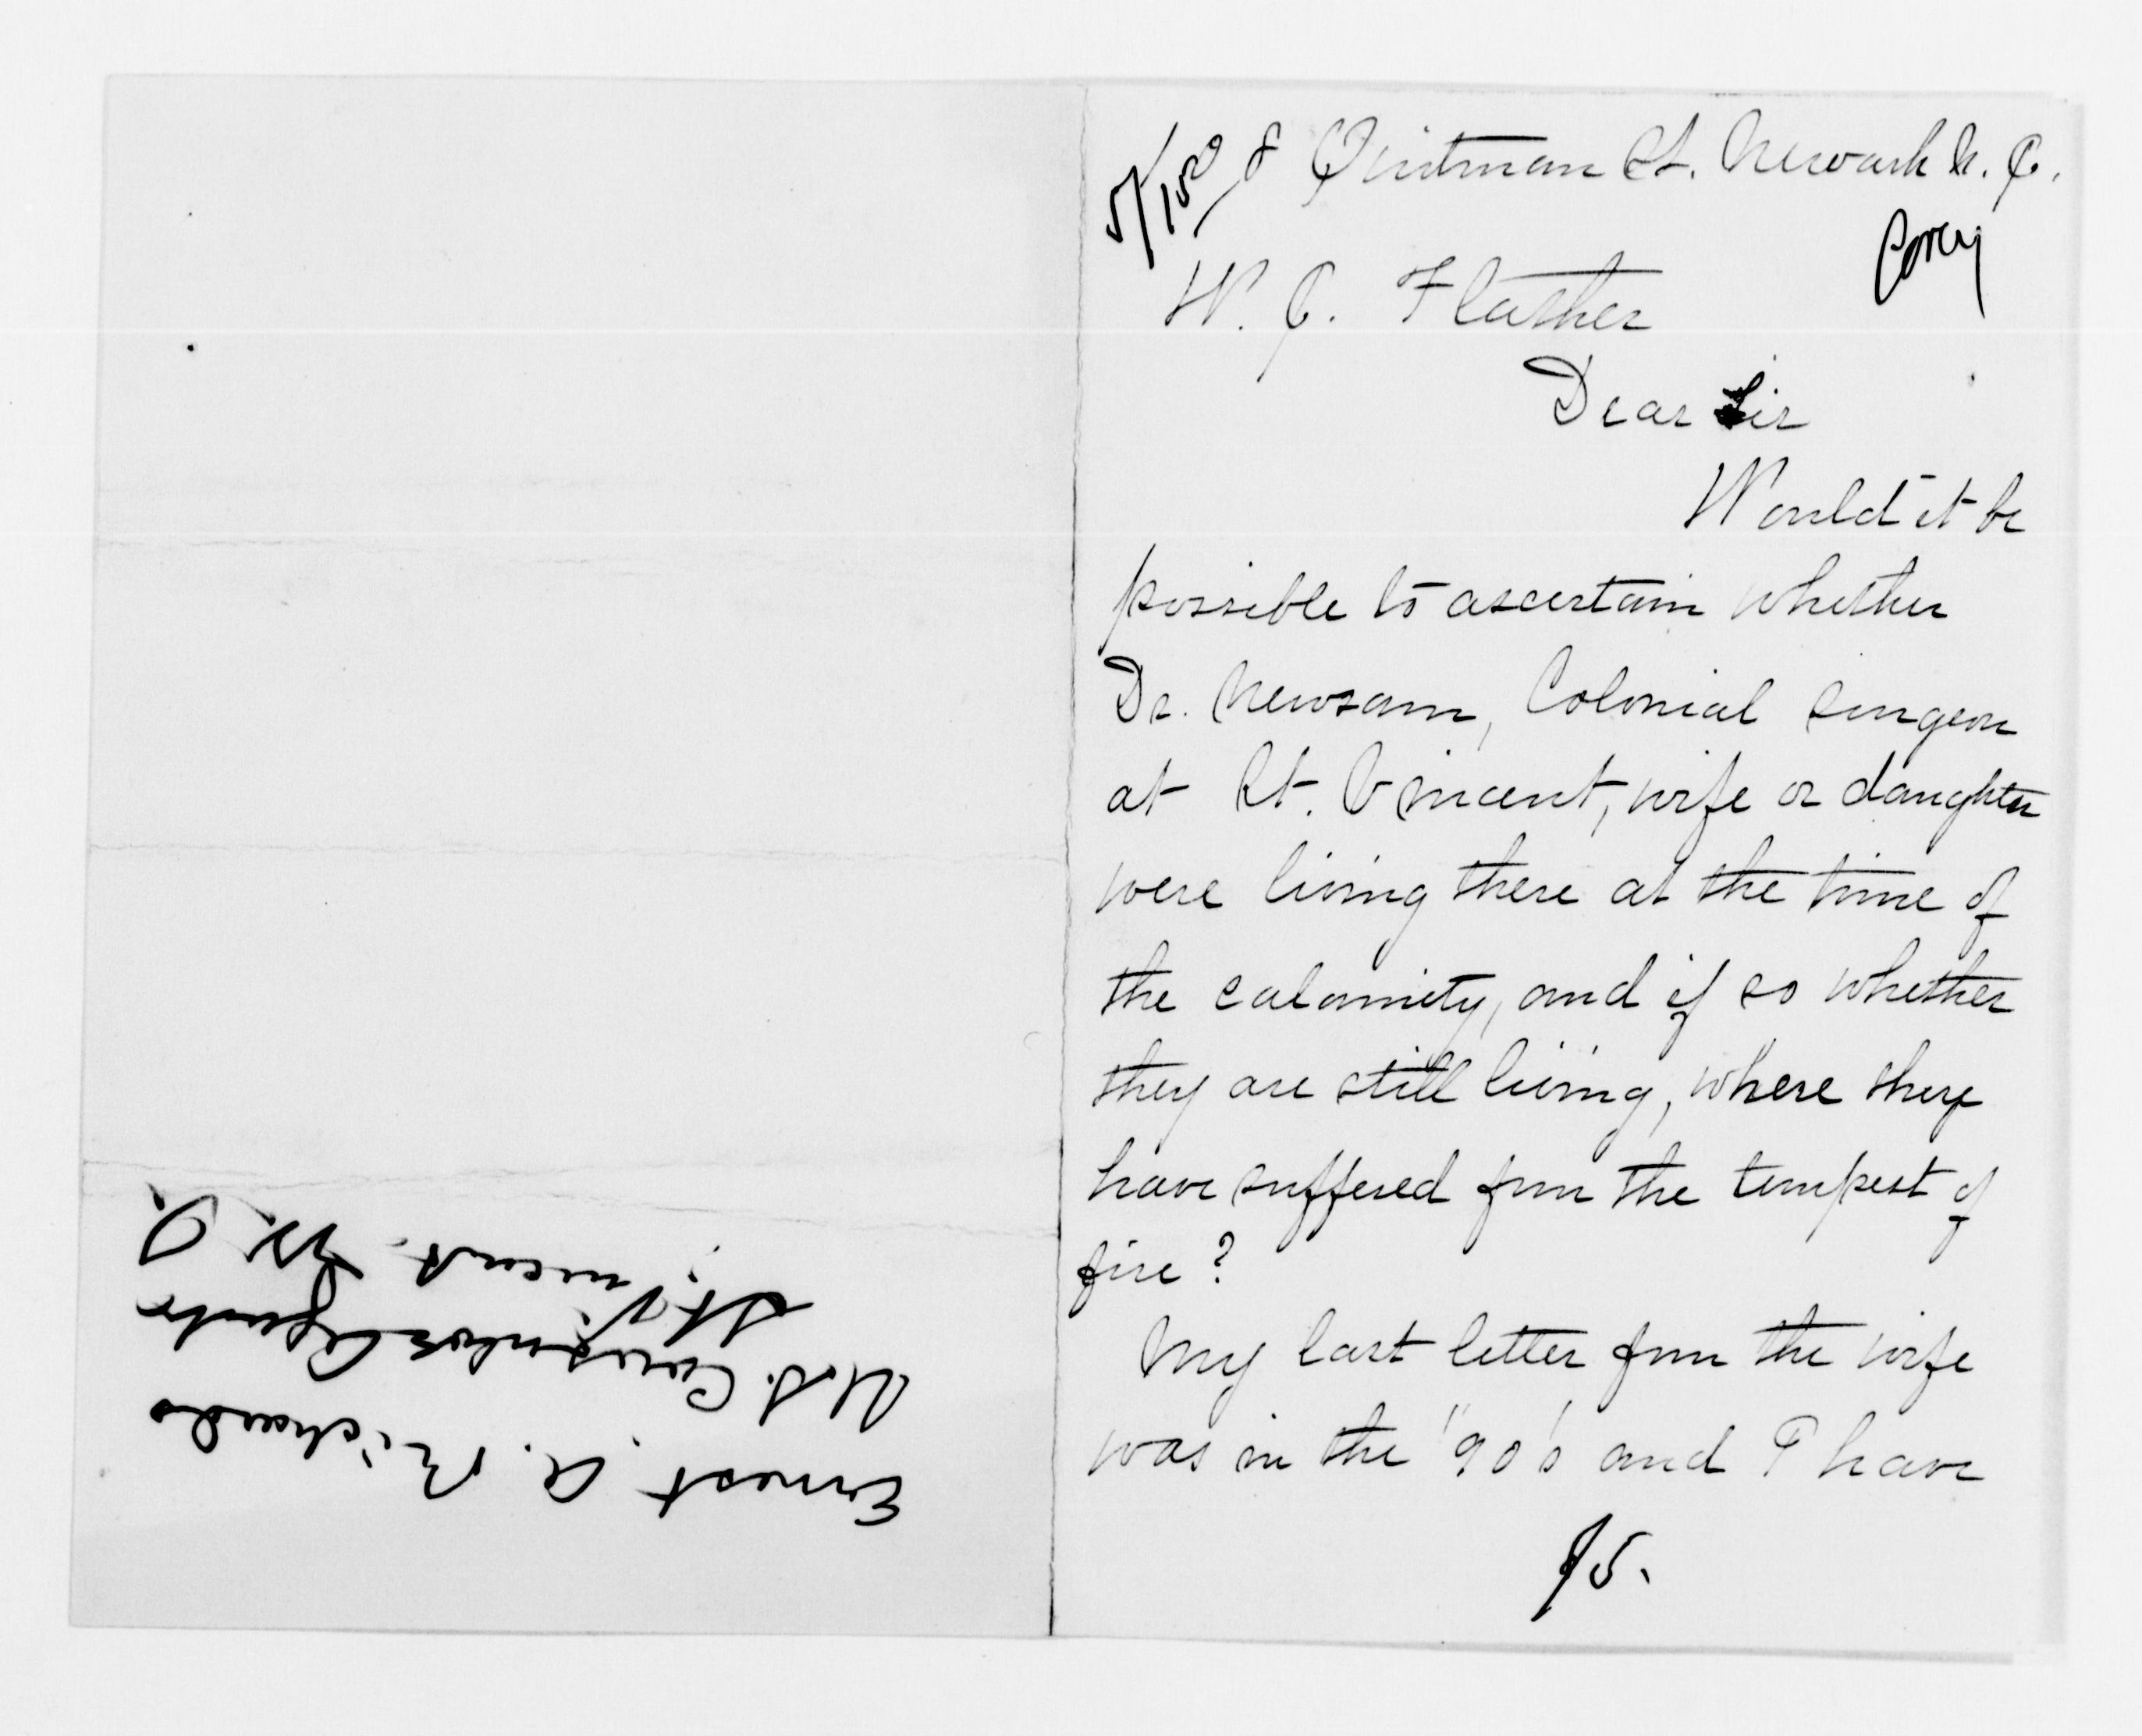 5/15
8 Quitman St. Newark N. J.
W. J. Flather
Dear Sir
Would it be
possible to ascertain whether
Dr. Newsam, Colonial surgeon
at St. Vincent, wife or daughter
were living there at the time of
the calamity, and if so whether
they are still living, where they
have suffered from the tempest of
fire?
My last letter from the wife
was in the '90's and I have
Ernest A. Richards
U.S. Consular Agent
St. Vincent. W. I.